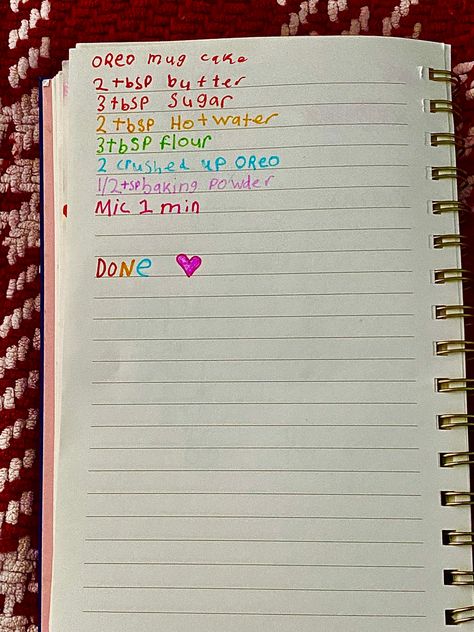 OREO mug cake
2 tbsp butter
3 tbsp Sugar
2 tbsp Hot water
3 tbsp flour
2 crushed up OREO
1/2 tsp baking powder
Mic 1 min
DONe